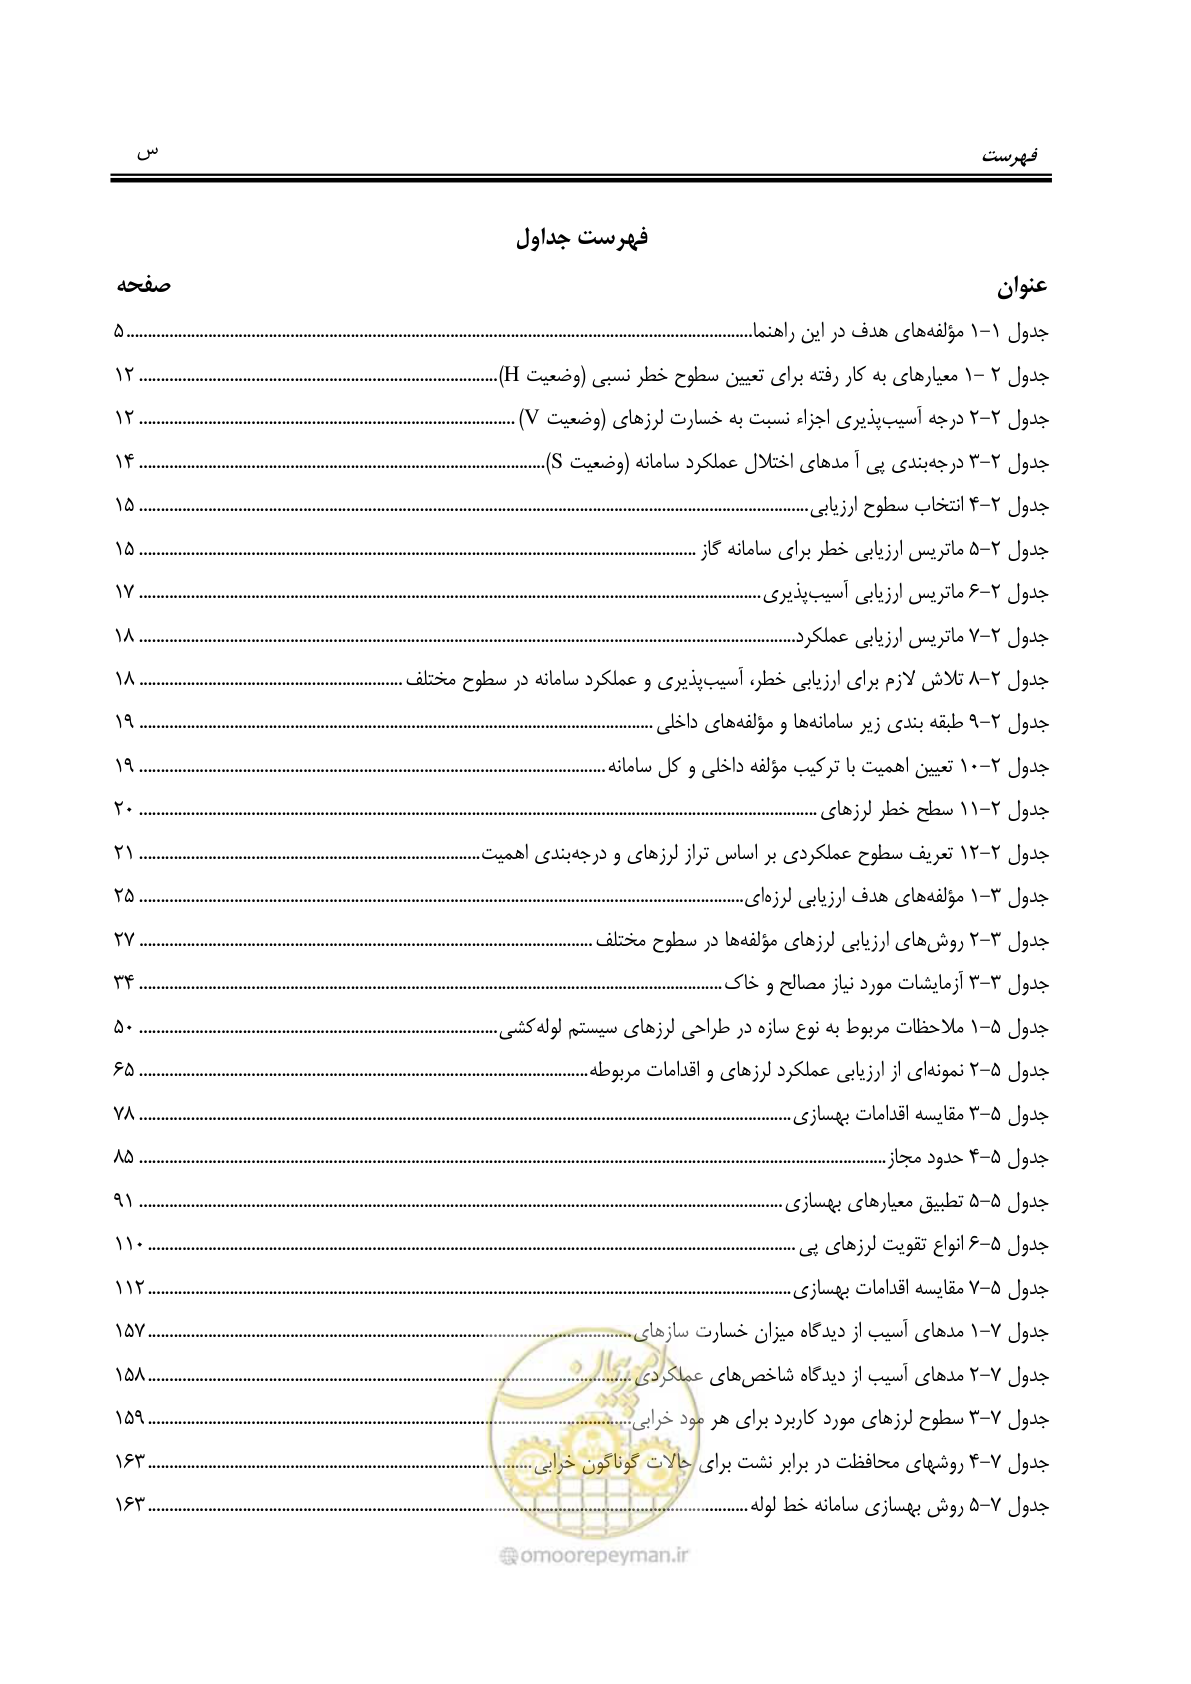 فهرست
س
فهرست جداول
عنوان صفحه
جدول ۱-۱ مؤلفه‌های هدف در این راهنما ۵
جدول ۲-۱ معیارهای به کار رفته برای تعیین سطوح خطر نسبی (وضعیت H) ۱۲
جدول ۲-۲ درجه آسیب‌پذیری اجزاء نسبت به خسارت لرزهای (وضعیت V) ۱۲
جدول ۲-۳ درجه‌بندی پی آ مدهای اختلال عملکرد سامانه (وضعیت S) ۱۴
جدول ۲-۴ انتخاب سطوح ارزیابی ۱۵
جدول ۲-۵ ماتریس ارزیابی خطر برای سامانه گاز ۱۵
جدول ۲-۶ ماتریس ارزیابی آسیب‌پذیری ۱۷
جدول ۲-۷ ماتریس ارزیابی عملکرد ۱۸
جدول ۲-۸ تلاش لازم برای ارزیابی خطر، آسیب‌پذیری و عملکرد سامانه در سطوح مختلف ۱۸
جدول ۲-۹ طبقه بندی زیر سامانه‌ها و مؤلفه‌های داخلی ۱۹
جدول ۲-۱۰ تعیین اهمیت با ترکیب مؤلفه داخلی و کل سامانه ۱۹
جدول ۲-۱۱ سطح خطر لرزهای ۲۰
جدول ۲-۱۲ تعریف سطوح عملکردی بر اساس تراز لرزهای و درجه‌بندی اهمیت ۲۱
جدول ۳-۱ مؤلفه‌های هدف ارزیابی لرزه‌ای ۲۵
جدول ۳-۲ روش‌های ارزیابی لرزهای مؤلفه‌ها در سطوح مختلف ۲۷
جدول ۳-۳ آزمایشات مورد نیاز مصالح و خاک ۳۴
جدول ۵-۱ ملاحظات مربوط به نوع سازه در طراحی لرزهای سیستم لوله‌کشی ۵۰
جدول ۵-۲ نمونه‌ای از ارزیابی عملکرد لرزهای و اقدامات مربوطه ۶۵
جدول ۵-۳ مقایسه اقدامات بهسازی ۷۸
جدول ۵-۴ حدود مجاز ۸۵
جدول ۵-۵ تطبیق معیارهای بهسازی ۹۱
جدول ۵-۶ انواع تقویت لرزهای پی ۱۱۰
جدول ۵-۷ مقایسه اقدامات بهسازی ۱۱۲
جدول ۷-۱ مدهای آسیب از دیدگاه میزان خسارت سازهای ۱۵۷
جدول ۷-۲ مدهای آسیب از دیدگاه شاخص‌های عملکردی ۱۵۸
جدول ۷-۳ سطوح لرزهای مورد کاربرد برای هر مود خرابی ۱۵۹
جدول ۷-۴ روشهای محافظت در برابر نشت برای حالات گوناگون خرابی ۱۶۳
جدول ۷-۵ روش بهسازی سامانه خط لوله ۱۶۳
امور پیمان
@omoorepeyman.ir